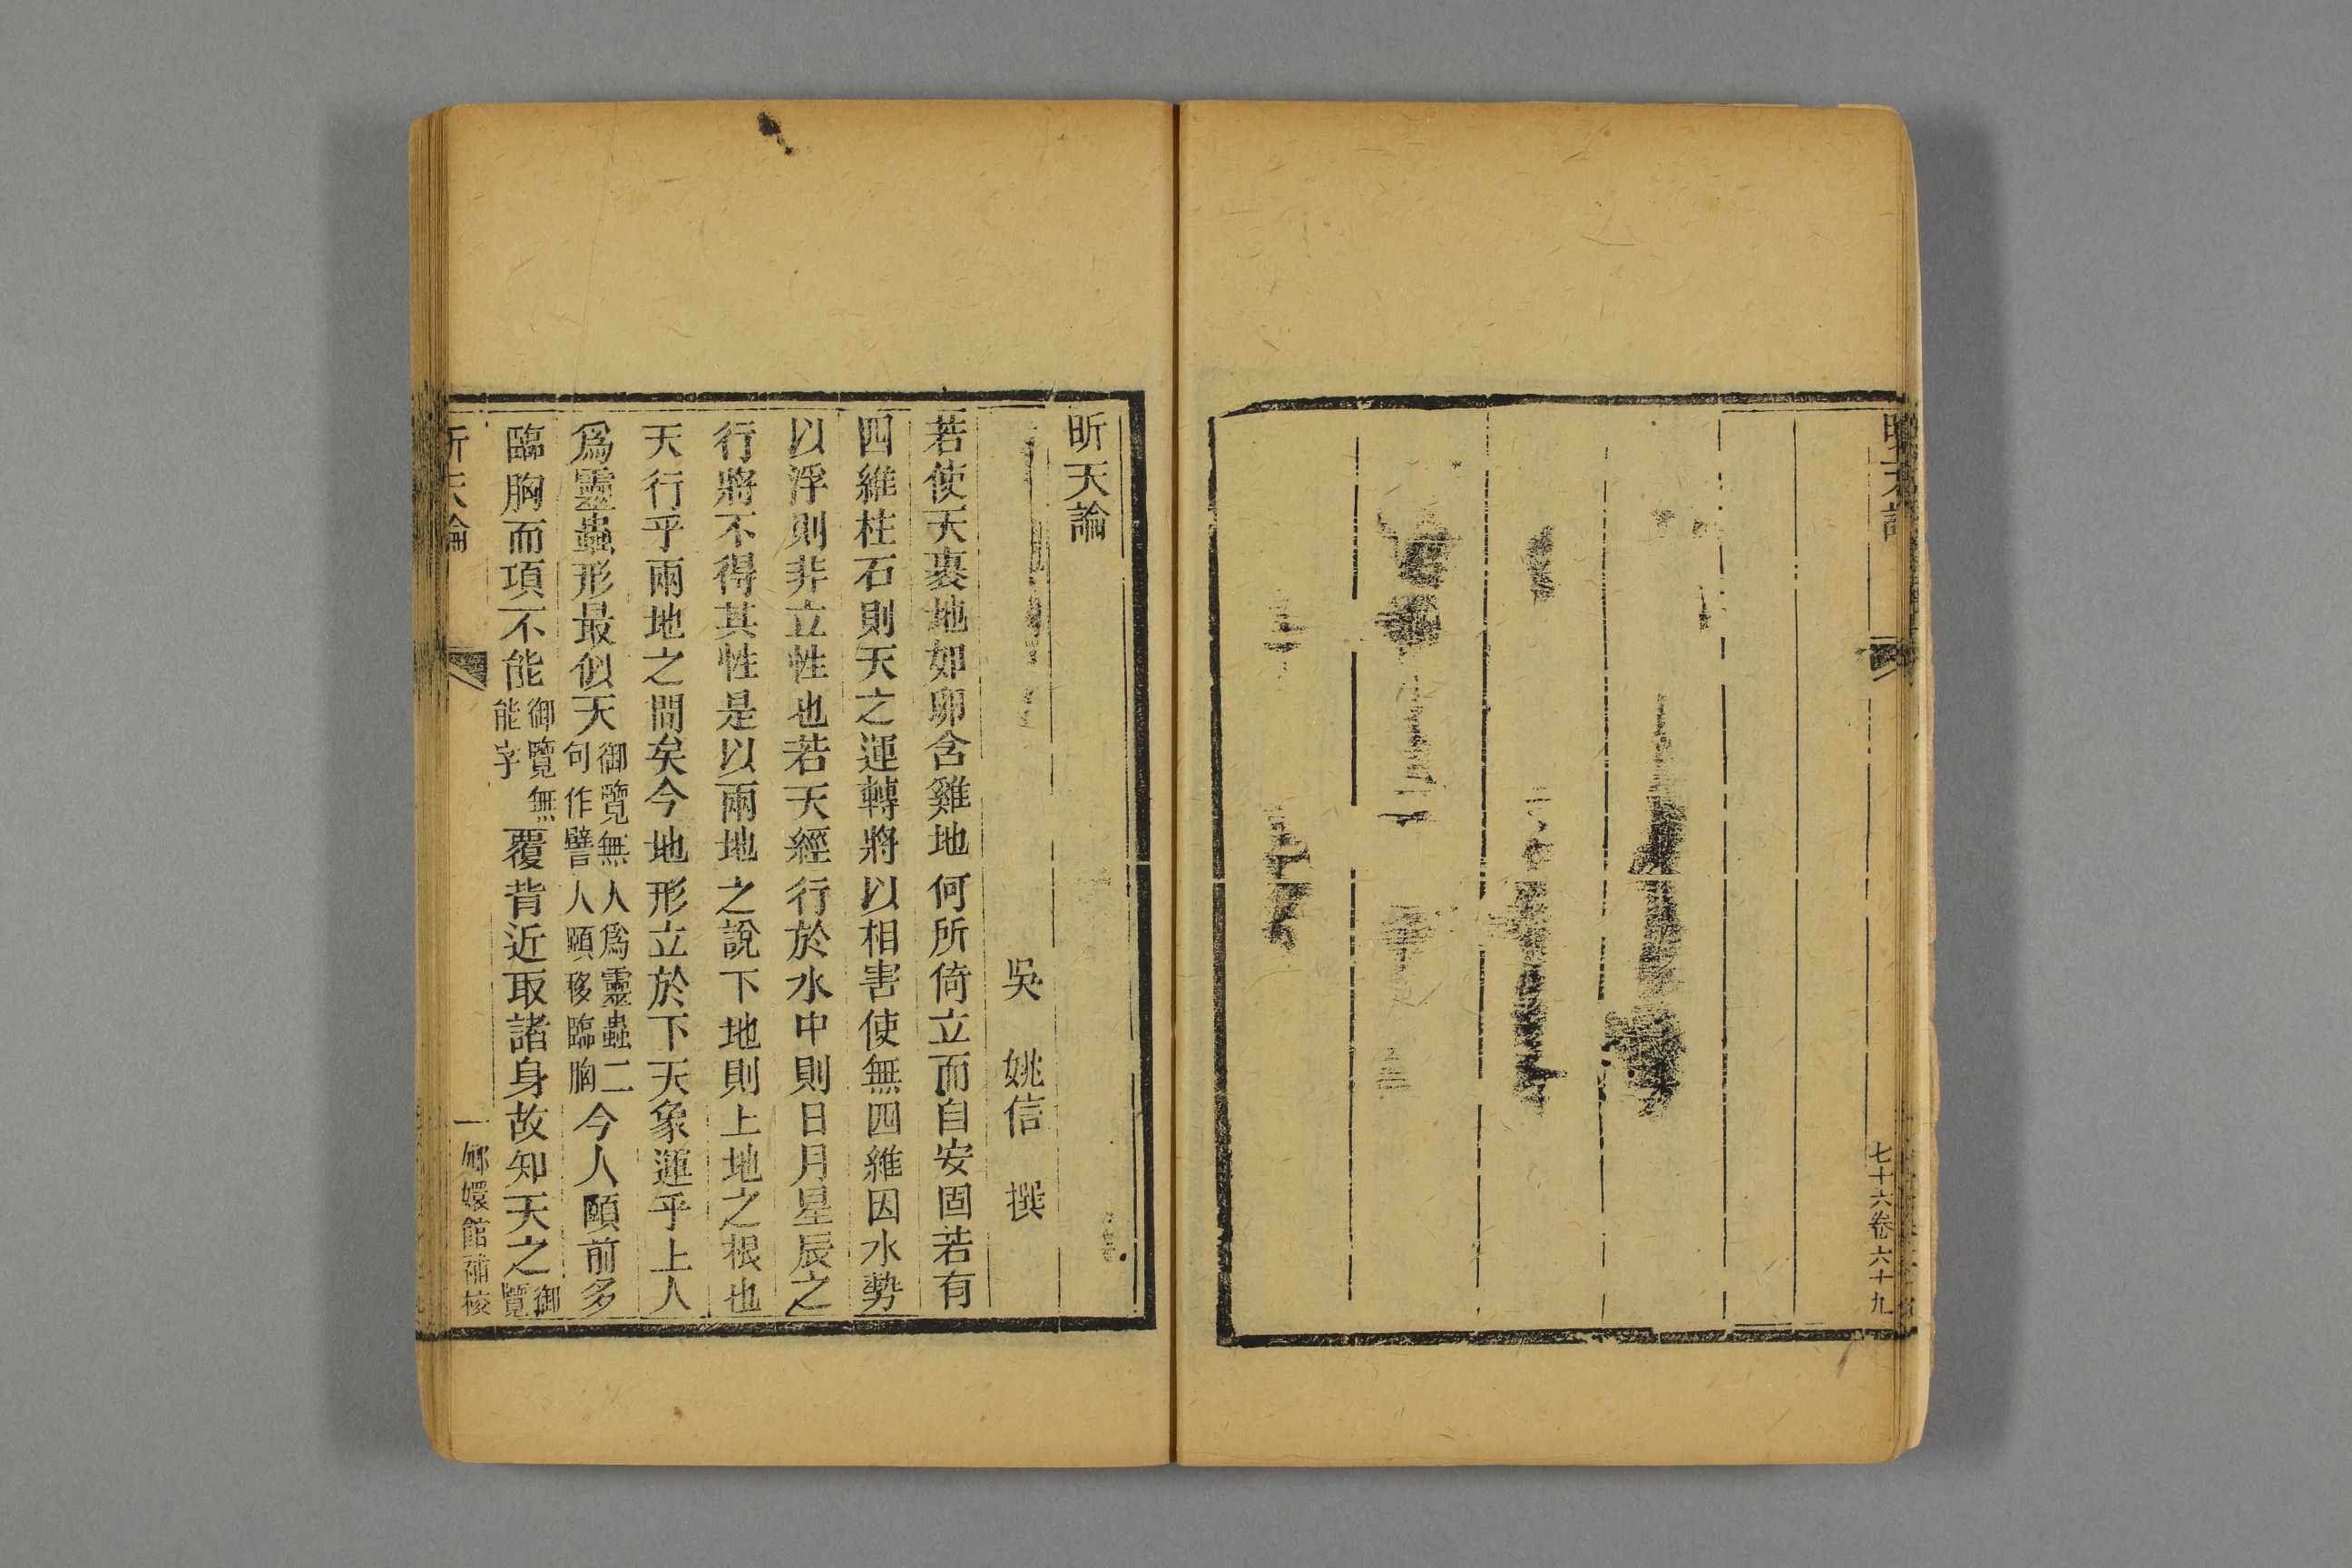 七十六卷六十九
昕天論
吳 姚信 撰
若使天裹地如卵含雞地何所倚立而自安固若有
四維柱石則天之運轉將以相害使無四維因水勢
以浮則非立性也若天經行於水中則日月星辰之
行將不得其性是以兩地之說下地則上地之根也
天行乎兩地之間矣今地形立於下天象運乎上人
爲靈蟲形最似天御覽無人爲靈蟲二句作譬人頤移臨胸今人頤前多
臨胸而項不能御覽無能字覆背近取諸身故知天之御覽
昕天論
一 嫏嬛館補校